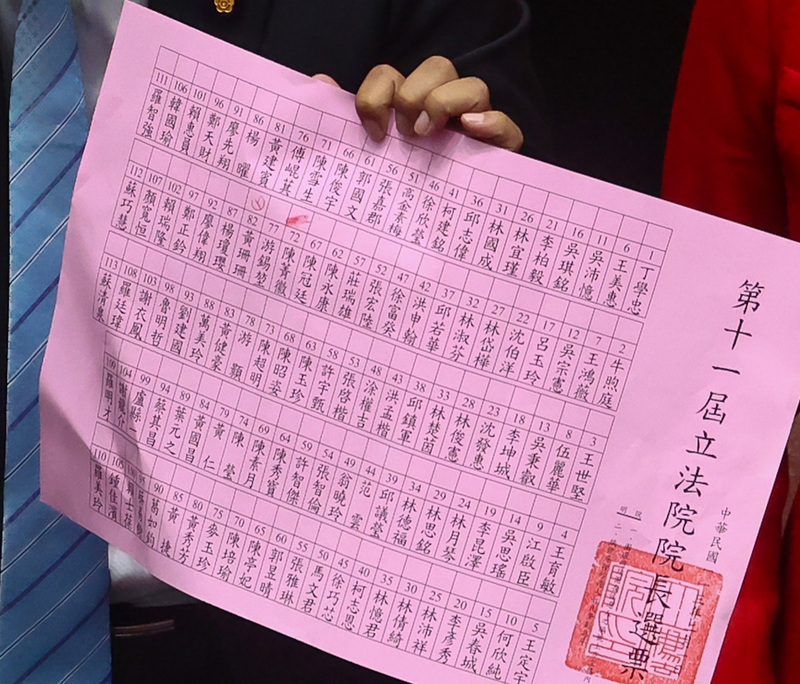 第十一屆立法院院長選票
中華民國
說明
1 丁學忠
6 王美惠
11 吳沛憶
16 吳琪銘
21 李柏毅
26 林宜瑾
31 林國成
36 邱志偉
41 柯建銘
46 徐欣瑩
51 高金素梅
56 張嘉郡
61 郭國文
66 陳俊宇
71 陳雪生
76 傅崐萁
81 黃建賓
86 楊曜
91 廖先翔
96 鄭天財
101 賴惠員
106 韓國瑜
111 羅智強
2 牛煦庭
7 王鴻薇
12 吳宗憲
17 呂玉玲
22 沈伯洋
27 林岱樺
32 林淑芬
37 邱若華
42 洪申翰
47 徐富癸
52 張宏陸
57 莊瑞雄
62 陳永康
67 陳冠廷
72 陳菁徽
77 游錫堃
82 黃珊珊
87 楊瓊瓔
92 廖偉翔
97 鄭正鈐
102 賴瑞隆
107 顏寬恒
112 蘇巧慧
3 王世堅
8 伍麗華
13 吳秉叡
18 李坤城
23 沈發惠
28 林俊憲
33 林楚茵
38 邱鎮軍
43 洪孟楷
48 涂權吉
53 張啓楷
58 許宇甄
63 陳玉珍
68 陳昭姿
73 陳超明
78 游顥
83 黃健豪
88 萬美玲
93 劉建國
98 魯明哲
103 謝衣鳳
108 羅廷瑋
113 蘇清泉
4 王育敏
9 江啟臣
14 吳思瑤
19 李昆澤
24 林月琴
29 林思銘
34 林德福
39 邱議瑩
44 范雲
49 翁曉玲
54 張智倫
59 許智傑
64 陳秀寳
69 陳素月
74 陳瑩
79 黃仁
84 黃國昌
89 葉元之
94 蔡其昌
99 盧縣一
104 謝龍介
109 羅明才
5 王定宇
10 何欣純
15 吳春城
20 李彥秀
25 林沛祥
30 林倩綺
35 林憶君
40 柯志恩
45 徐巧芯
50 馬文君
55 張雅琳
60 郭昱晴
65 陳亭妃
70 陳培瑜
75 麥玉珍
80 黃秀芳
85 黃捷
90 葛如鈞
賴士葆
105 鍾佳濱
110 羅美玲